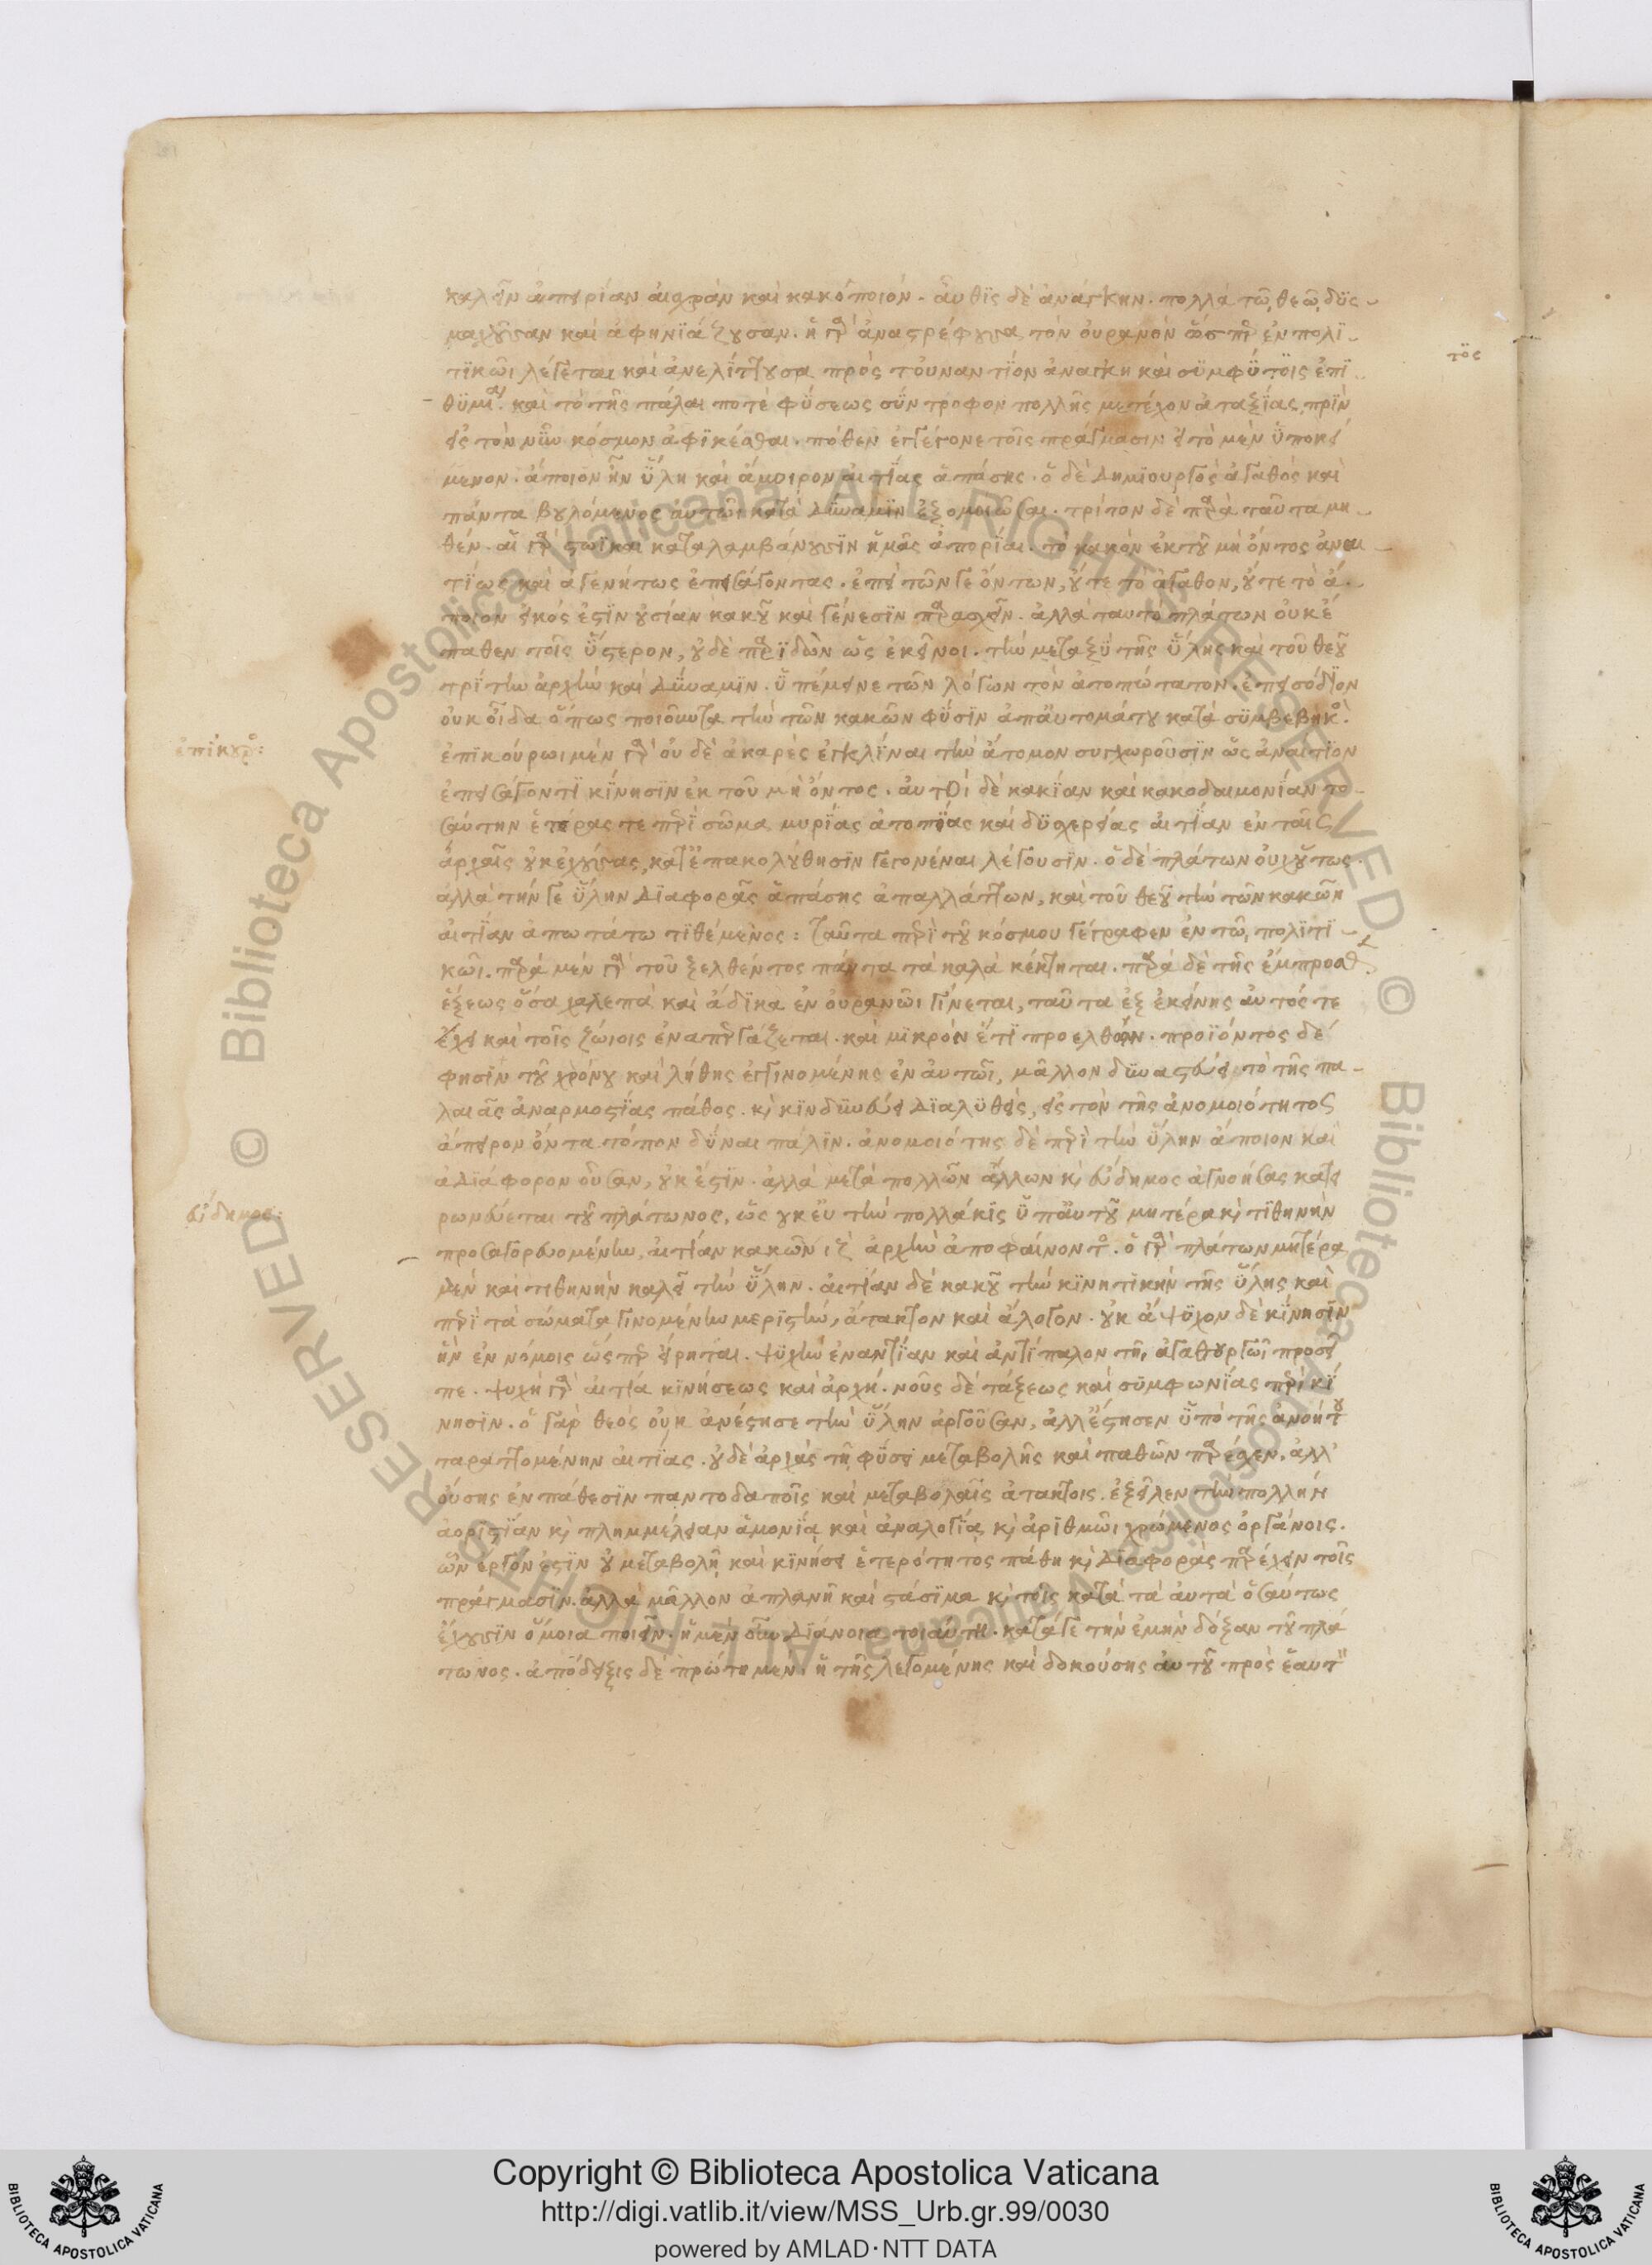 καλεῖν ἀπειρίαν αἰσχρὰν καὶ κακόποιόν. αὖθϊς δὲ ἀνάγκην. πολλὰ τῶ θεῶ δϋς
μαχοῦσαν καὶ ἀφηνϊάζουσαν. ἡ γὰρ ἀναστρέφουσα τὸν οὐρανὸν ὥσπερ ἐν πολϊ
τϊκῶι λέγεται καὶ ἀνελίττουσα πρὸς τοὐναντίον ἀνάγκη καὶ σϋμφϋτοις ἐπϊ
θϋμία. καὶ τὸ τῆς πάλαι ποτὲ φϋσεως σϋντροφον πολλῆς μετέχον ἀταξϊας, πρϊν
εἰς τὸν νῦν κόσμον ἀφϊκέσθαι. πόθεν ἐγγέγονε τοῖς πράγμασιν εἰ τὸ μὲν ϋποκεί
μενον. ἄποιον ἦν ὕλη καὶ ἄμοιρον αἰτΐας ἁπάσης. ὁ δὲ δημϊουργὸς ἀγαθὸς καὶ
πάντα βουλόμενος αὑτῶι κατὰ δϋναμϊν ἐξομοιῶσαι. τρίτον δὲ παρὰ ταῦτα μη
θέν. αἱ γὰρ στωϊκαι καταλαμβάνουσϊν ἡμᾶς ἀπορΐαι. τὸ κακὸν ἐκ τοῦ μὴ ὄντος ἀναι
τΐως καὶ ἀγενήτως ἐπεισάγοντας. ἐπεὶ τῶν γε ὄντων, οὔτε τὸ ἀγαθον, οὔτε τὸ ἄ
ποιον εἰκός ἐστϊν οὐσίαν κακοῦ καὶ γένεσϊν παρασχεῖν. ἀλλὰ ταυτὸ πλάτων οὐκ ἔ
παθεν τοῖς ὕστερον, οὐδὲ παριδὼν ὡς ἐκεῖνοι. τὴν μεταξϋ τῆς ὕλης καὶ τοῦ θεοῦ
τρΐτην ἀρχὴν καὶ δϋναμϊν. ϋπέμεινε τῶν λόγων τὸν ἀτοπώτατον. ἐπεισόδϊον
οὐκ οἶδα ὅπως ποιοῦντα τὴν τῶν κακῶν φϋσϊν ἀπ αὐτομάτου κατὰ σϋμβεβηκὸς.
ἐπίκουρος:
ἐπϊκούρωι μὲν γὰρ οὐ δὲ ἀκαρὲς ἐγκλῖναι τὴν ἄτομον συγχωροῦσϊν ὡς ἀναίτϊον
ἐπεισάγοντϊ κΐνησϊν ἐκ τοῦ μὴ ὄντος. αὐτοὶ δὲ κακίαν καὶ κακοδαιμονΐαν το
σαύτην ἑτέρας τε περὶ σῶμα μυρΐας ἀτοπΐας καὶ δϋσχερείας αἰτίαν ἐν ταῖς
ἀρχαῖς οὐκ ἐχούσας, κατ ἐπακολούθησϊν γεγονέναι λέγουσϊν. ὁ δὲ πλάτων οὐχ οὕτως.
ἀλλὰ τήν γε ὕλην διαφορᾶς ἁπάσης ἀπαλλάττων, καὶ τοῦ θεοῦ τὴν τῶν κακῶν
αἰτΐαν ἀπωτάτω τϊθέμενος: ταῦτα περὶ τοῦ κόσμου γέγραφεν ἐν τῶ πολϊτϊ
κῶι. παρὰ μὲν γὰρ τοῦ ξελθέντος πάντα τὰ καλὰ κέκτηται. παρὰ δὲ τῆς ἔμπροσθ
ἕξεως ὅσα χαλεπὰ καὶ ἄδϊκα ἐν οὐρανῶι γΐνεται, ταῦτα ἐξ ἐκείνης αὐτός τε
ἔχει καὶ τοῖς ζώιοις ἐναπεργάζεται. καὶ μϊκρὸν ἔτϊ προελθών. προϊόντος δέ
φησϊν τοῦ χρόνου καὶ λήθης ἐγγινομένης ἐν αὐτῶι, μᾶλλον δϋναστεύει τὸ τῆς πα
λαιᾶς ἀναρμοστΐας πάθος. κὶ κϊνδϋνεύει διαλϋθεὶς, εἰς τὸν τῆς ἀνομοιότητος
ἄπειρον ὄντα τόπον δῦναι πάλϊν. ἀνομοιότης δὲ περὶ τὴν ὕλην ἄποιον καὶ
ἀδϊάφορον οὖσαν, οὐκ ἔστϊν. ἀλλὰ μετὰ πολλῶν ἄλλων κὶ εὔδημος ἀγνοήσας κατει
εὔδημος:
ρωνεύεται τοῦ πλάτωνος, ὡς οὐκ εὖ τὴν πολλάκϊς ὑπ αὐτοῦ μητέρα κὶ τϊθηνὴν
προσαγορευομένην, αἰτίαν κακῶν κὶ ἀρχὴν ἀποφαίνοντος. ὁ γὰρ πλάτων μητέρα
μὲν καὶ τιθηνὴν καλεῖ τὴν ὕλην. αἰτΐαν δὲ κακοῦ τὴν κϊνητϊκὴν τῆς ὕλης καὶ
περὶ τὰ σώματα γινομένην μερϊστὴν, ἄτακτον καὶ ἄλογον. οὐκ ἄψϋχον δὲ κΐνησϊν
ἣν ἐν νόμοις ὥσπερ εἴρηται. ψϋχὴν ἐναντΐαν καὶ ἀντΐπαλον τῆι ἀγαθουργῶι προσεῖ
πε. ψυχὴ γὰρ αἰτία κϊνήσεως καὶ ἀρχή. νοῦς δὲ τάξεως καὶ σϋμφωνΐας περὶ κΐ
νησϊν. ὁ γὰρ θεὸς οὐκ ἀνέστησε τὴν ὕλην ἀργοῦσαν, ἀλλ ἔστησεν ϋπὸ τῆς ἀνοήτου
ταραττομένην αἰτΐας. οὐδὲ ἀρχὰς τῆ φϋσει μεταβολῆς καὶ παθῶν παρέσχεν. ἀλλ
οὔσης ἐν πάθεσϊν παντοδαποῖς καὶ μεταβολαῖς ἀτάκτοις. ἐξεῖλεν τὴν πολλὴν
ἀορϊστΐαν κὶ πλημμέλειαν ἁμονΐα καὶ ἀναλογΐα κὶ ἀριθμῶι χρώμενος ὀργάνοις.
ὧν ἔργον ἐστϊν οὐ μεταβολῆ καὶ κϊνήσει ἑτερότητος πάθη κὶ διαφορὰς παρέχειν τοῖς
πράγμασϊν. ἀλλὰ μᾶλλον ἀπλανῆ καὶ στάσϊμα κὶ τοῖς κατὰ τὰ αὐτὰ ὡσαύτως
ἔχουσϊν ὅμοια ποιεῖν. ἡ μὲν οὖν διάνοια τοιαύτη. κατά γε τὴν ἐμὴν δόξαν τοῦ πλά
τωνος. ἀπόδειξις δὲ πρώτη μὲν. ἡ τῆς λεγομένης καὶ δοκούσης αὐτοῦ πρὸς ἑαυτ
τος
Copyright © Biblioteca Apostolica Vaticana
http://digi.vatlib.it/view/MSS_Urb.gr.99/0030
powered by AMLAD·NTT DATA